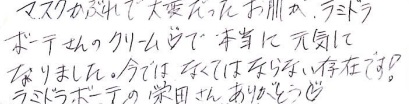 マスクかぶれで大変だったお肌が、ラミドラ
ボーテさんのクリーム♡で本当に元気に
なりました。今ではなくてはならない存在です!
ラミドラボーテの栄田さんありがとう♡